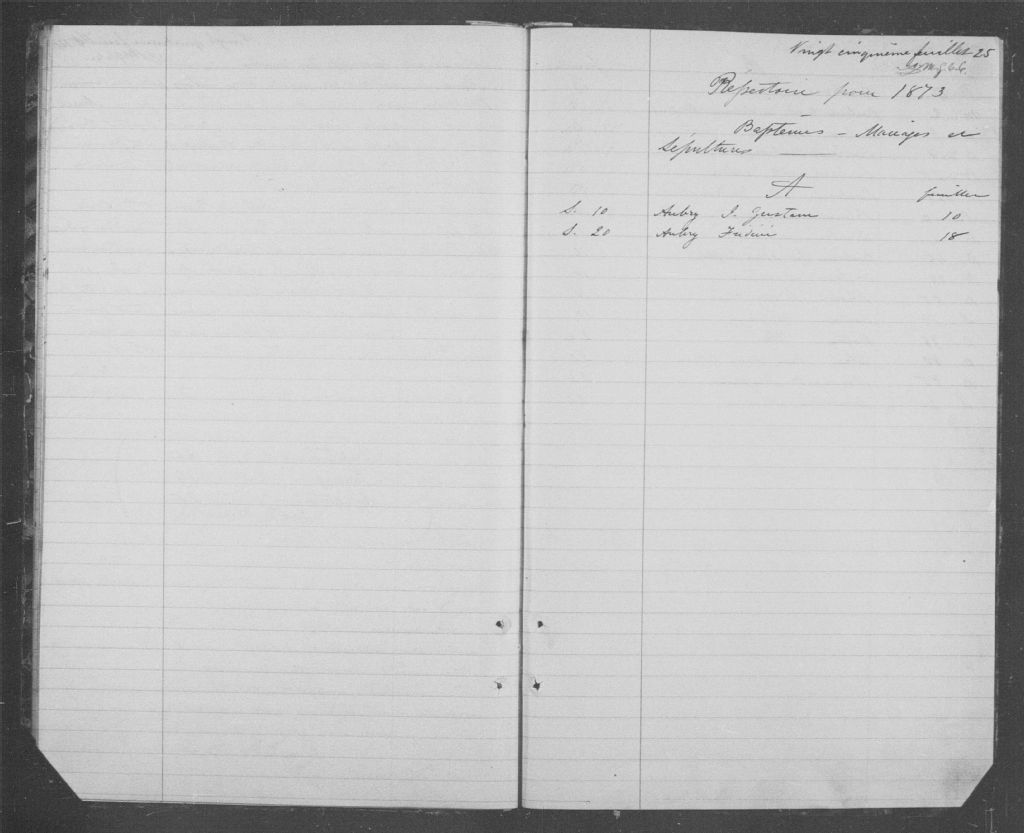 Vingt cinquième feuillet 25
Répertoire pour 1873
Baptêmes – Mariages et
Sépultures
A feuillet
S. 10 Aubry J. Gustave 10
S. 20 Aubry 18